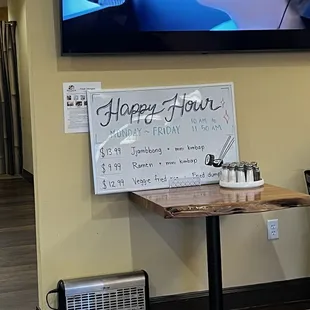 Happy Hour
MONDAY ~ FRIDAY
10 AM to
11:50 AM
$13.99 Jjambbong + mini kimbap
$9.99 Ramen + mini kimbap
$12.99 Veggie fried Fried dump